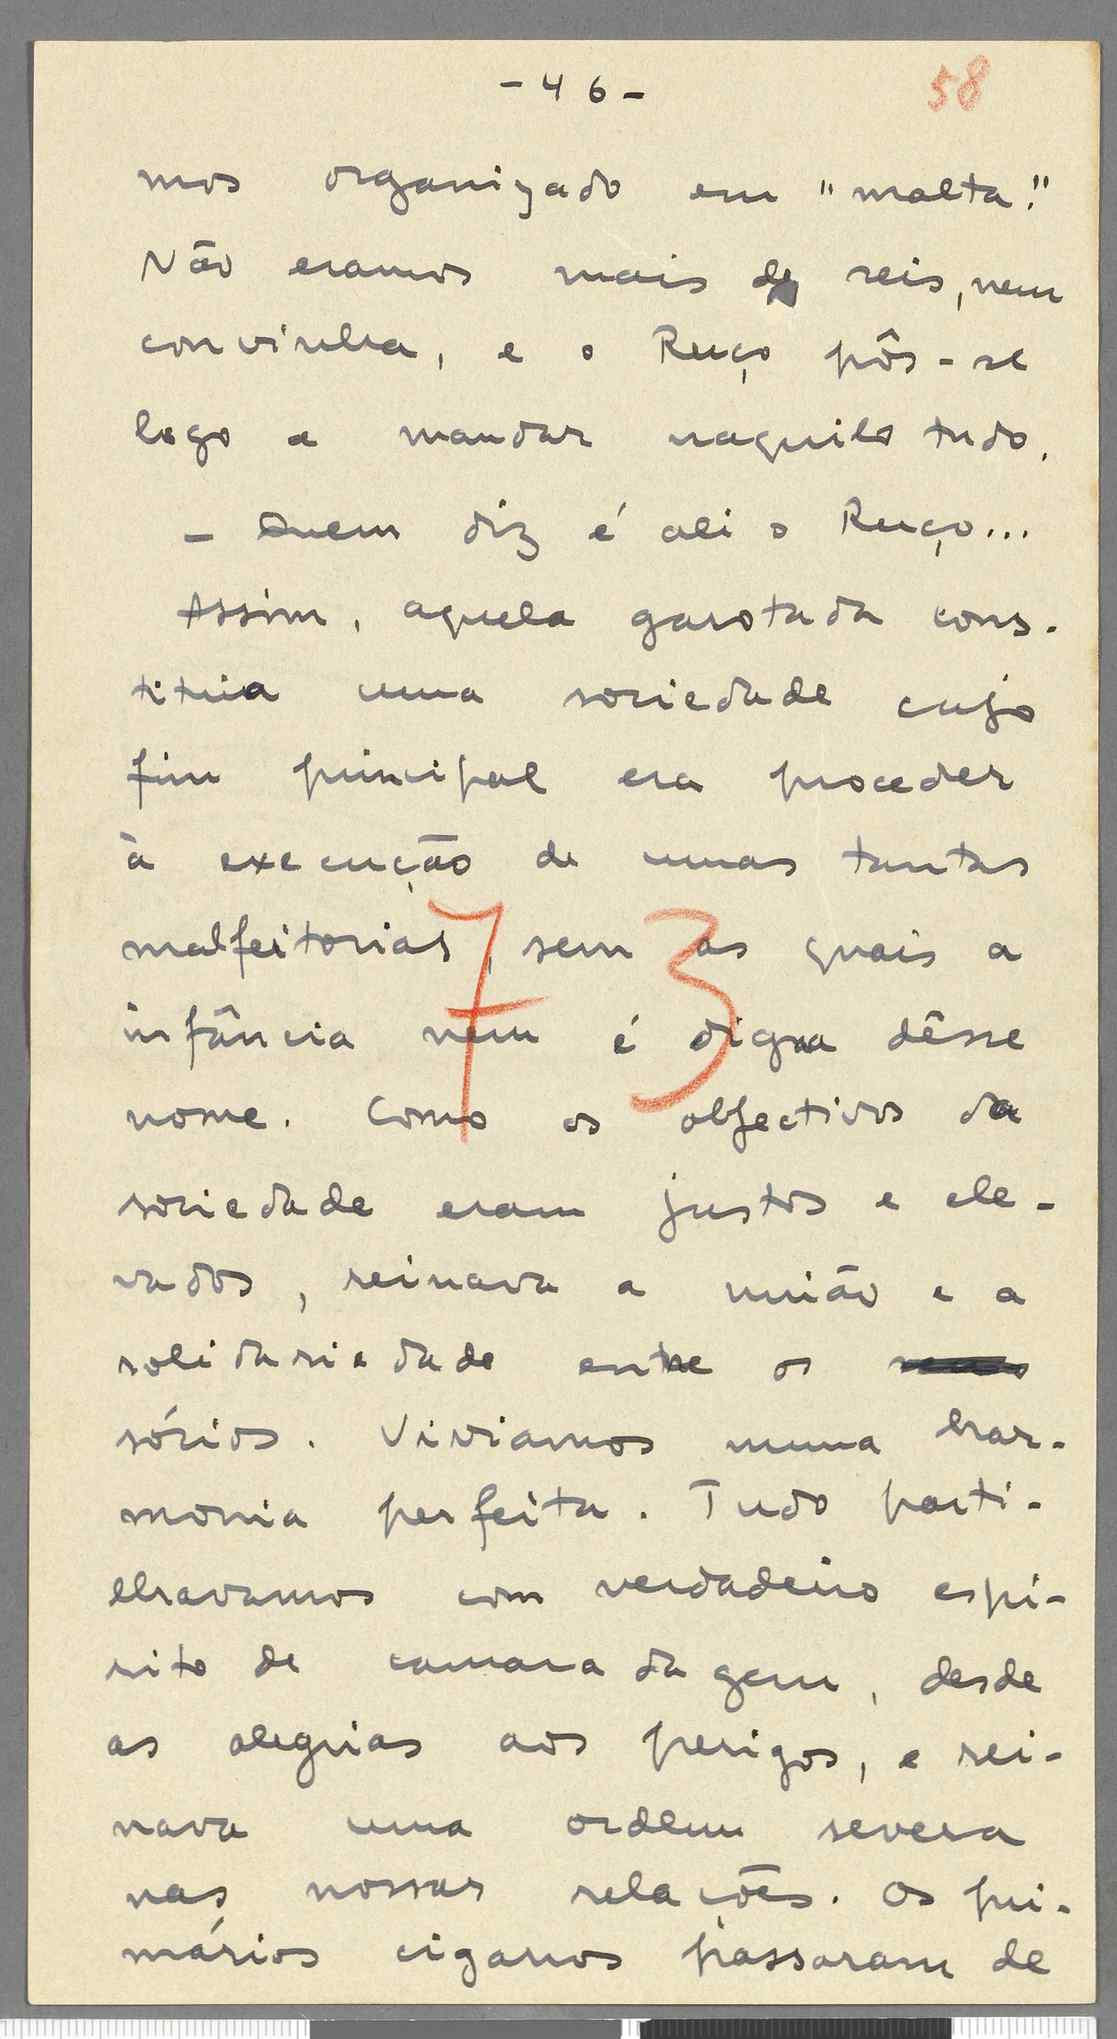 - 46 -
58
mos organizado em "malta!"
Não eramos mais de seis, nem
convinha, e o Ruço pôs-se
logo a mandar naquilo tudo.
- Quem diz é ali o Ruço...
Assim, aquela garotada cons-
tituia uma sociedade cujo
fim principal era proceder
à execução de umas tantas
malfeitorias, sem as quais a
infância nem é digna dêsse
nome. Como os objectivos da
sociedade eram justos e ele-
vados, reinava a união e a
solidariedade entre os
sócios. Viviamos numa har-
monia perfeita. Tudo parti-
lhavamos com verdadeiro espi-
rito de camaradagem, desde
as alegrias aos perigos, e rei-
nava uma ordem severa
nas nossas relações. Os pri-
mários ciganos passaram de
73